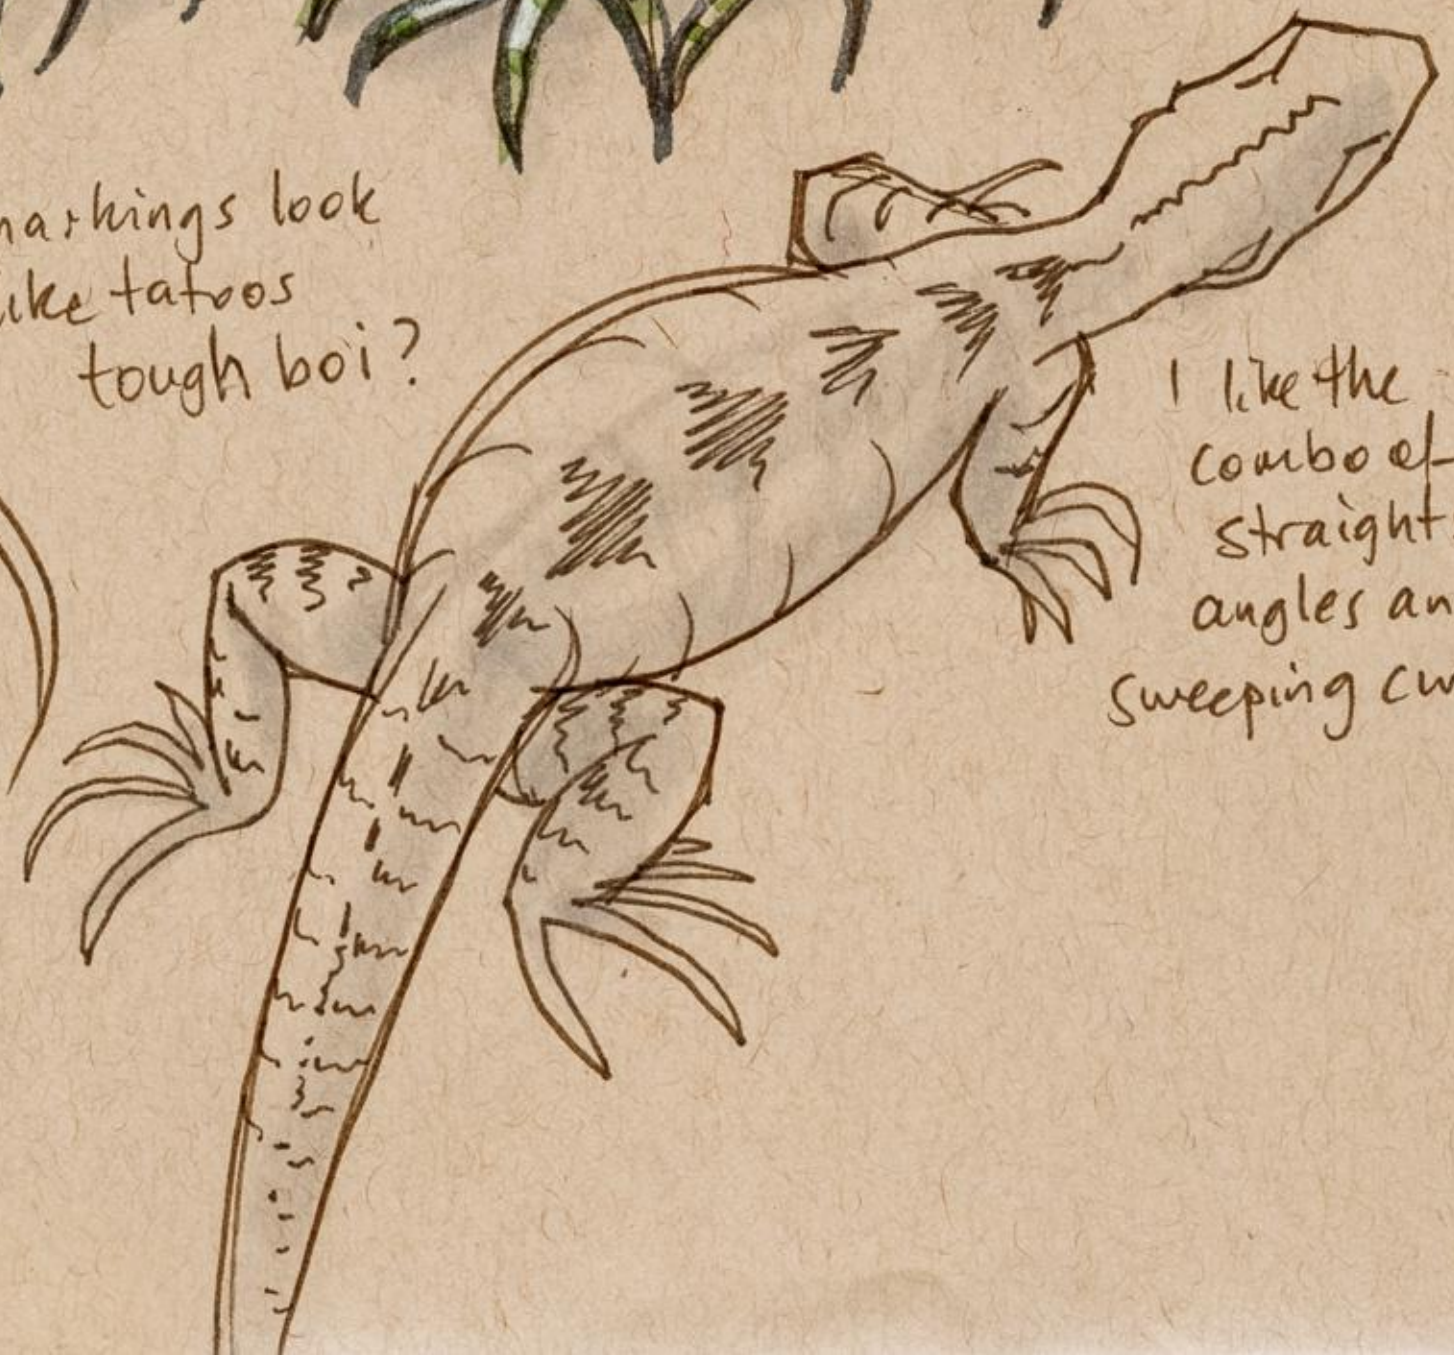 markings look
like tatoos
tough boi?
I like the
combo of
straight
angles an
sweeping cu